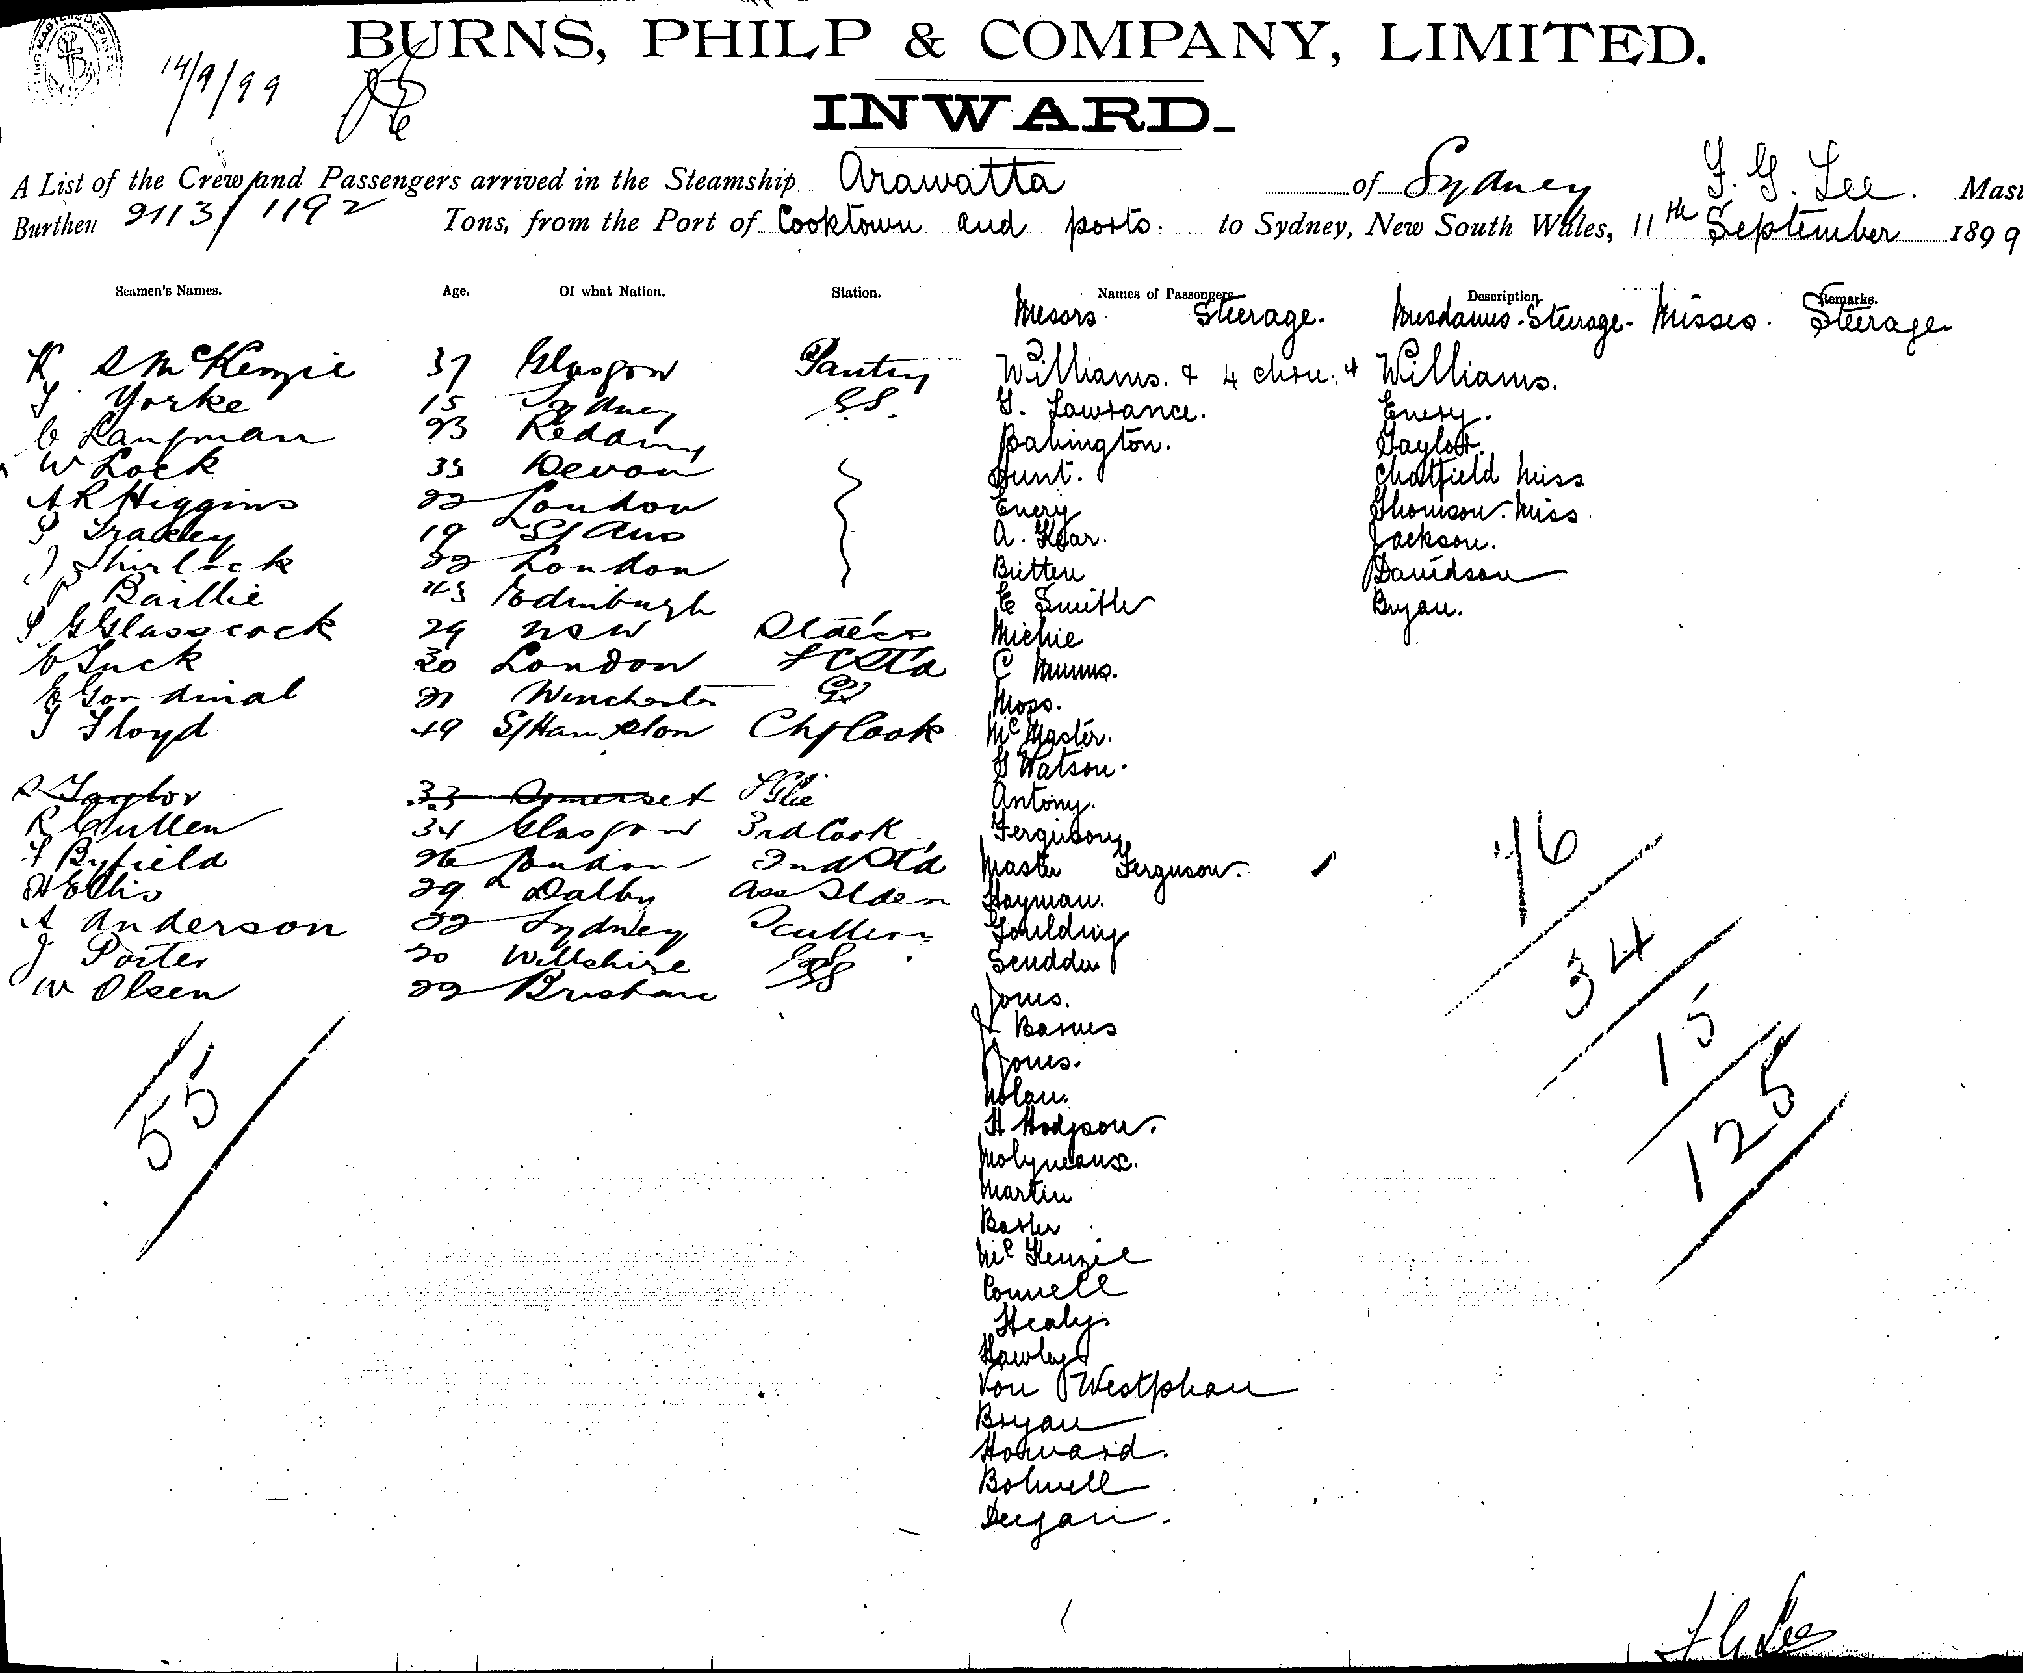 BURNS, PHILP & COMPANY, LIMITED.
14/9/99
INWARD.
A List of the Crew and Passengers arrived in the Steamship Arawatta of Sydney F. G. Lee. Mast
Burthen 2113/1192 Tons, from the Port of Cooktown and ports. to Sydney, New South Wales, 11th September 1899
Seamen's Names. Age. Of what Nation. Station. Names of Passengers Description Remarks.
Messrs Steerage. Mesdames - Steerage - Misses. Steerage
K S McKenzie 37 Glasgow Pantry Williams. & 4 chdn. & Williams.
Yorke 15 Sydney G.S. G. Lawrance. Enery.
C Langman 23 Redding Babington. Taylor.
W Lock 33 Devon Hunt. Chatfield Miss
A R Higgins 22 London Enery Thomson. Miss.
Tracey 19 S/Aus A. Kear. Jackson.
Shirlock 22 London Britten Davidson
Baillie 43 Edinburgh E Smith Bryan.
S G Glasscock 29 NSW Michie
Tuck 30 London C Munns.
21 Winchester Moss.
Floyd 49 S/Hampton Chf Cook McMaster.
G Watson.
S Taylor 33 Somerset Antony.
R Cullen 34 Glasgow 3rd Cook Ferguson
F Byfield 26 London 2nd Std Master Ferguson.
H Ellis 29 Dalby Hayman.
A Anderson 22 Sydney Goulding
J Porter 20 Wiltshire Scudder
W Olsen 22 Brisbane Jones.
J. Barnes
Jones.
Nolan.
H Hodgson.
Molyneaux.
Martin
Baxter
McKenzie
Connell
Healy
Hawley
Von Westphan
Bryan
Howard.
Bolwell
Deegan.
55
76
34
15
125
F G Lee